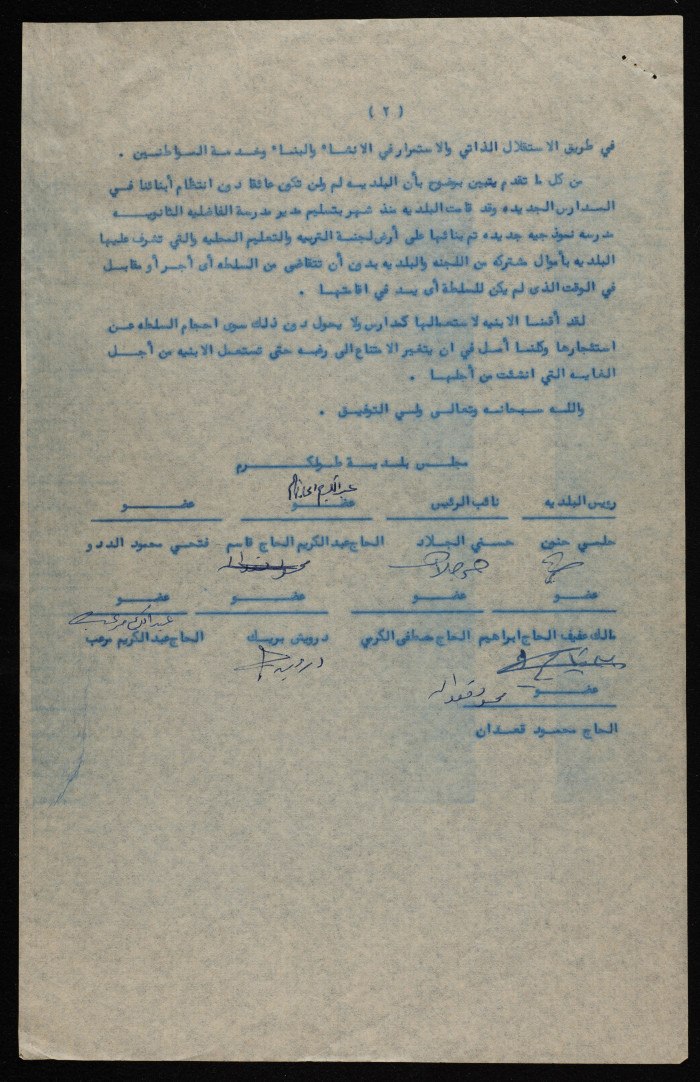 ( ٢ )
في طريق الاستقلال الذاتي والاستمرار في الانشاء والبناء وخدمة المواطنين .
من كل ما تقدم يتبين بوضوح بأن البلديه لم ولن تكون عائقا دون انتظام أبنائنا في
المدارس الجديده وقد قامت البلديه منذ شهر بتسليم مدير مدرسة الفاضليه الثانويه
مدرسه نموذجيه جديده تم بنائها على أرض لجنة التربيه والتعليم المحليه والتي تشرف عليها
البلديه بأموال مشتركه من اللجنه والبلديه بدون أن تتقاضى من السلطه أى أجر أو مقابل
في الوقت الذى لم يكن للسلطة أى يد في اقامتها .
لقد أقمنا الابنيه لاستعمالها كمدارس ولا يحول دون ذلك سوى احجام السلطه عن
استئجارها وكلنا أمل في ان يتغير الامتناع الى رغبه حتى تستعمل الابنيه من أجل
الغايه التي انشئت من أجلها .
والله سبحانه وتعالى ولي التوفيق .
مجلس بلدية طولكرم
عبد الكريم الحاج قاسم
رويس البلديه نائب الرئيس عضو عضو
حلمي حنون حسني الجلاد الحاج عبد الكريم الحاج قاسم فتحي محمود الددو
عضو عضو عضو عضو
عبد الكريم مرعب
مالك عفيف الحاج ابراهيم الحاج مصطفى الكرمي درويش بريك الحاج عبد الكريم مرعب
درويش
عضو محمود قعدان
الحاج محمود قعدان